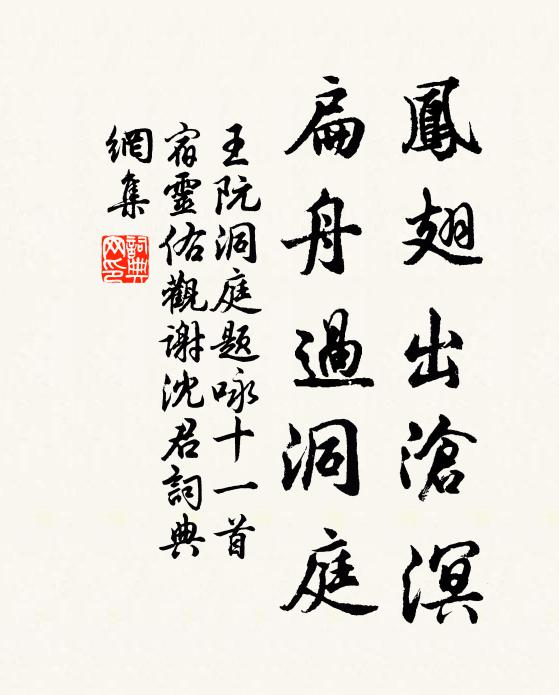 鳳翅出滄溟
扁舟過洞庭
王阮洞庭题咏十一首
宿靈佑觀谢沈君詞典
網集
詞典
网印